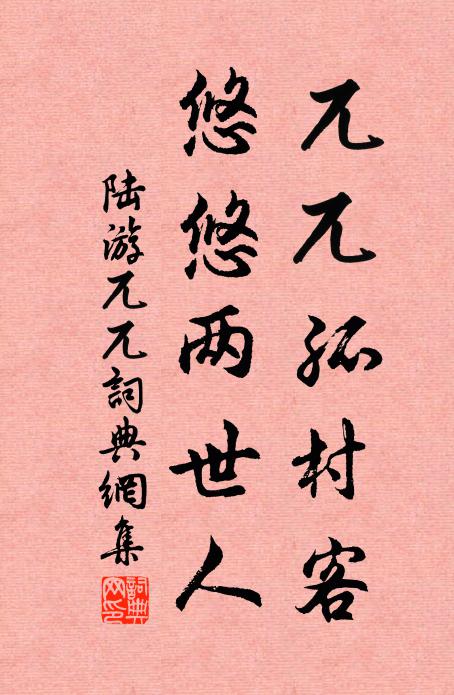 兀兀孤村客
悠悠两世人
陆游兀兀詞典網集
詞典
网印